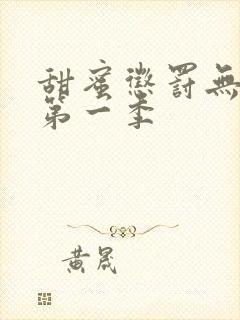 甜蜜懲罰無
第一季
黃晟